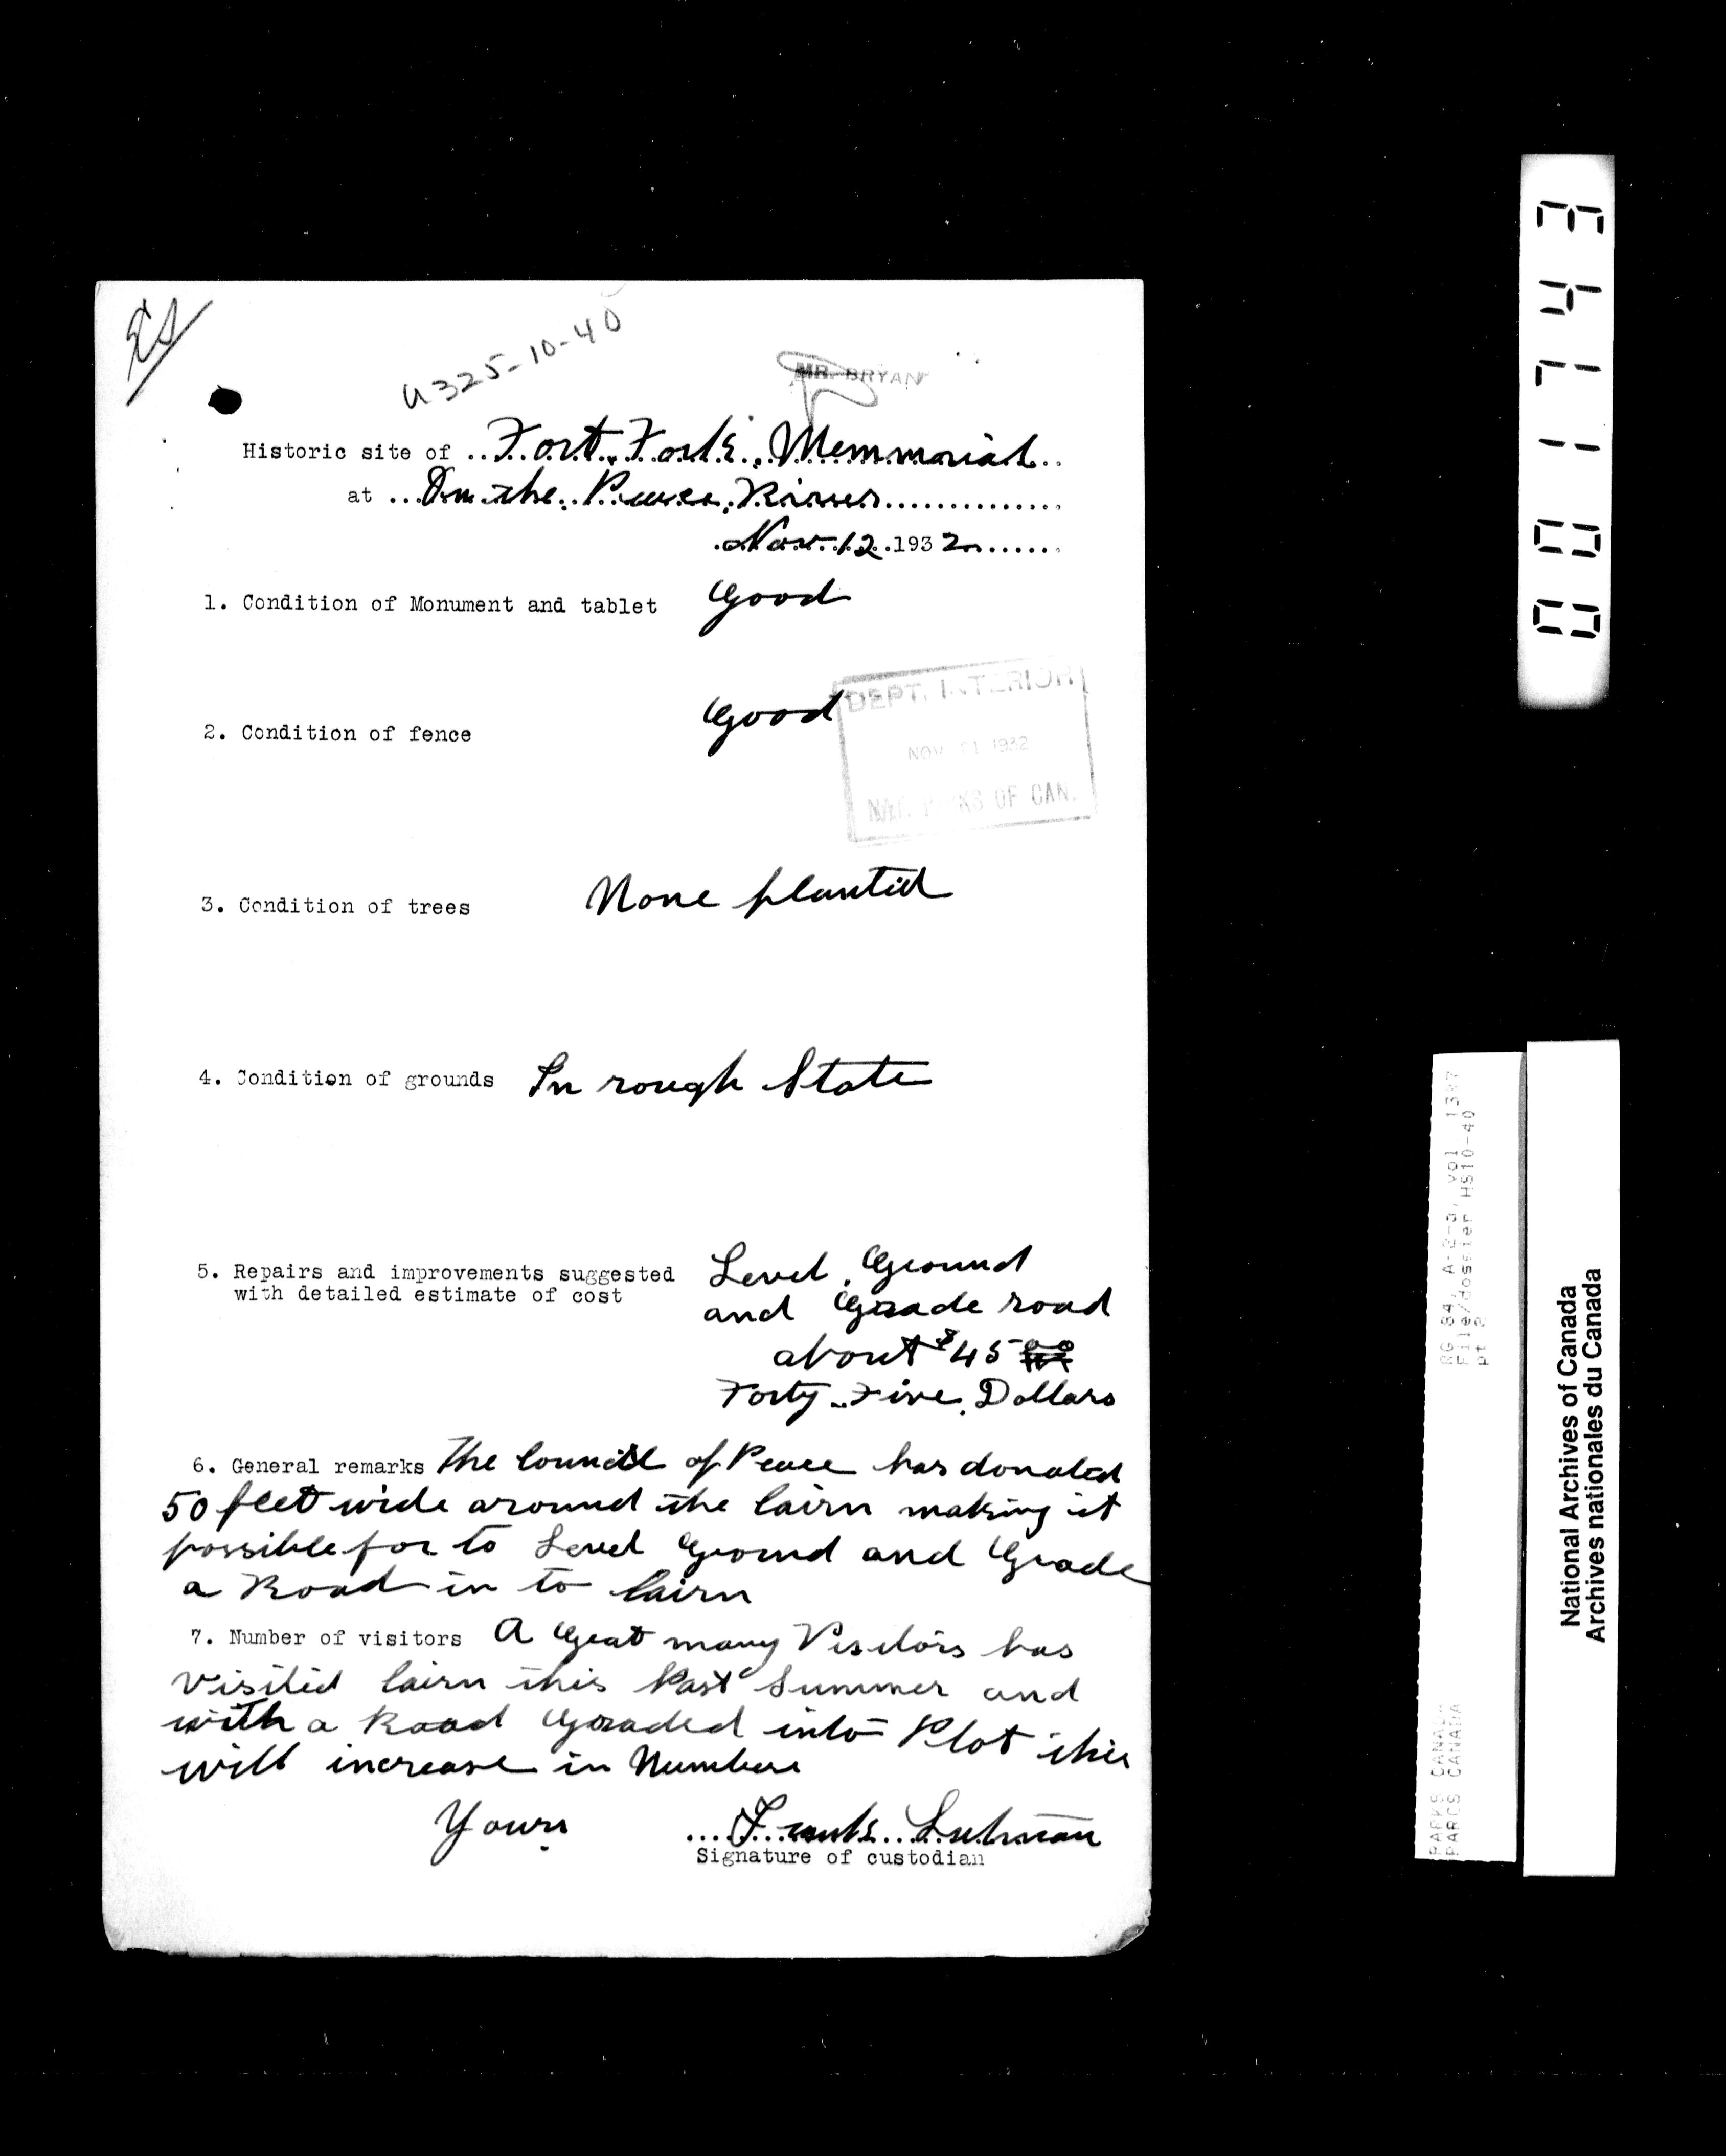 U325-10-40
MR. BRYAN
Historic site of Fort Fork Memmorial
at On the Peace River
Nov 12 1932
1. Condition of Monument and tablet Good
DEPT. INTERIOR
2. Condition of fence Good
NOV 21 1932
NAT. PARKS OF CAN.
3. Condition of trees None planted
4. Condition of grounds In rough State
5. Repairs and improvements suggested Level Ground
with detailed estimate of cost and Graade road
about $45 00
Forty-Five Dollars
6. General remarks The Council of Peace has donated
50 feet wide around the Cairn making it
possible for to Level Ground and Grade
a Road in to Cairn
7. Number of visitors A Great many Visitors has
visited Cairn this Past Summer and
with a Road Graded into Plot this
will increase in Numbers
Yours Frank Lutman
Signature of custodian
001743
RG 84, A-2-a, vol. 1387
File/dossier HS10-40
pt 2
PARKS CANADA
PARCS CANADA
National Archives of Canada
Archives nationales du Canada